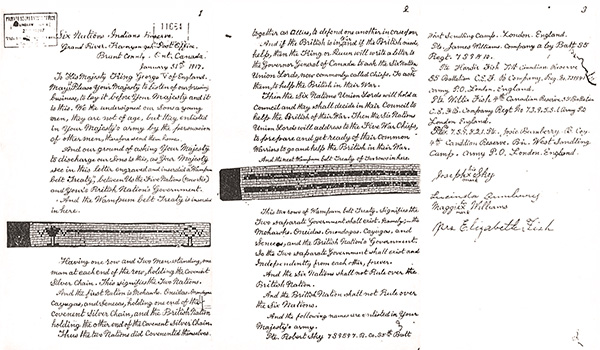 11651
1
Six Nations Indians Reserve.
Grand River. Kanyengeh Post Office.
Brant County. Ont. Canada.
January 31st 1917.
To His Majesty King George V of England.
May it Please Your Majesty to listen of our pressing
business, to lay it before Your Majesty and it
is this. We the undersigned our Sons are young
men, they are not of age, but they enlisted
in Your Majesty's army by the persuasion
of other men, therefore send them home.
And our ground of asking Your Majesty
to discharge our Sons is this, as Your Majesty
see in this letter engraved and inserted a Wampum
belt Treaty, between the Five Nations
and Your British Nation's Government.
And the Wampum belt Treaty is inserted
in here.
Having one row and two Men standing, one
man at each end of the row holding the Covenant
Silver Chain. This signifies the Two Nations.
And the first Nation is Mohawks. Oneidas.
Cayugas, and Senecas, holding one end of the
Covenent Silver Chain, and the British Nation
holding the other end of the Covenent Silver Chain.
Thus the two Nations did Covenented themselves.
2
together as Allies, to defend one another in case of war.
And if the British is in War and if the British needs
help, then the King or Queen will write a letter to
the Governor General of Canada to ask the Six Nations
Union Lords, now commonly called Chiefs. To ask
them, to help the British in their War.
Then the Six Nations Union Lords will hold a
Council and they shall decide in their Council to
help the British of their War. Then the Six Nations
Union Lords will address to the Five War Chiefs,
to prepare and get ready of their Common
Warriors to go and help the British in their War.
And the next Wampum belt Treaty of Two rows in here
This two rows of Wampum belt Treaty. Signifies the
Two separate Government shall exist. Namely:- the
Mohawks. Oneidas. Onondagas. Cayugas, and
Senecas, and the British Nation's Government.
So the Two separate Government shall exist and
Independently from each other, forever.
And the Six Nations shall not Rule over the
British Nation.
And the British Nation shall not Rule over
the Six Nations.
And the following names were enlisted in Your
Majesty's army.
Pte. Robert Sky 739597. A. Co. 35th Batt
3
Camp. London. England.
Pte. James Williams. Company a by Batt 35
Regt. 739810.
Pte. Hardie Fish 7th Canadian Reserve
35 Battalion C.E.F. Company, Reg No.
Army P.O. London. England.
Pte. Willie Fish 4th Canadian Reserve 35 Battalion
C.E.F. Company Regt No 739251. Army P.O.
London England.
Pte. 739321. Pte. Josie Bumberry B. Coy
4th Canadian Reserve. Bn. West Sandling
Camp. Army P.O. London. England.
Joseph Sky
Lucinda
Maggie Williams
Mrs Elizabeth Fish